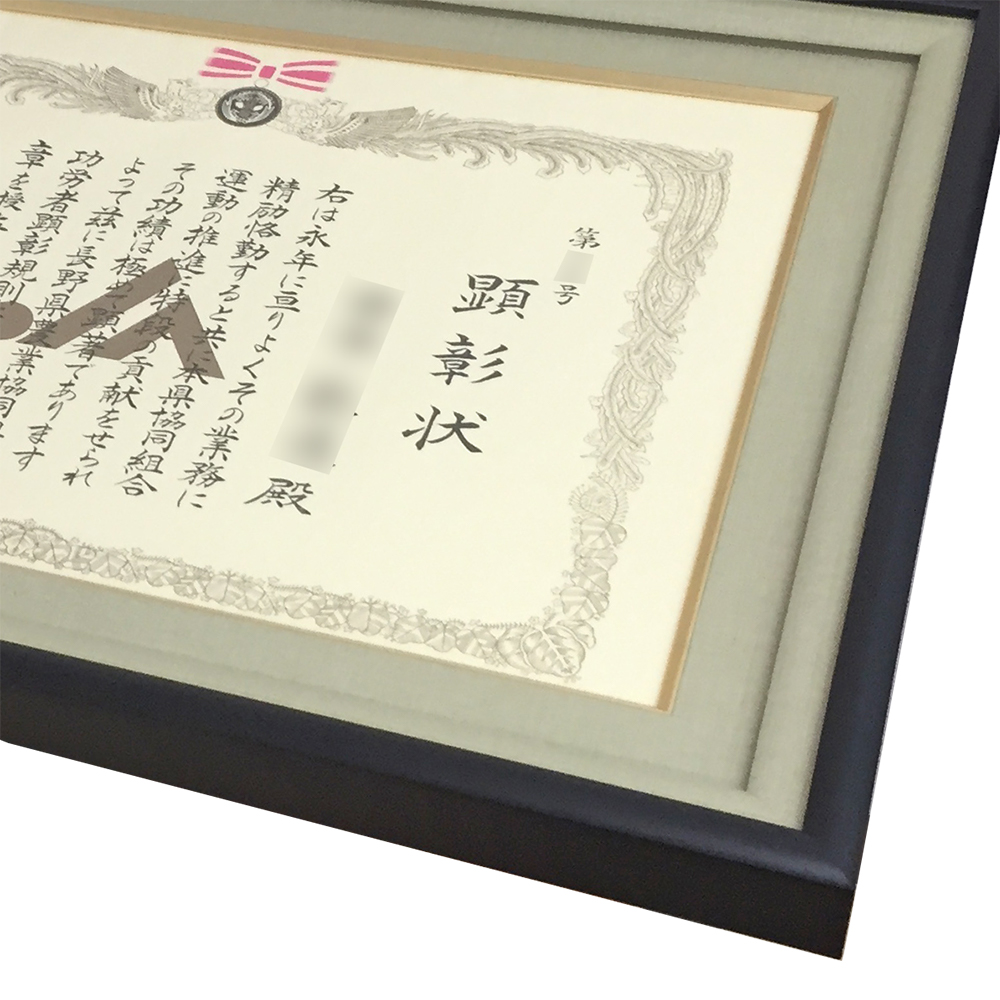 第
号
顕彰状
殿
右は永年に亘りよくその業務に
精励恪勤すると共に本県協同組合
運動の推進に特段の貢献をせられ
その功績は極めて顕著であります
よって茲に長野県農業協同組
功労者顕彰規則
章を授与